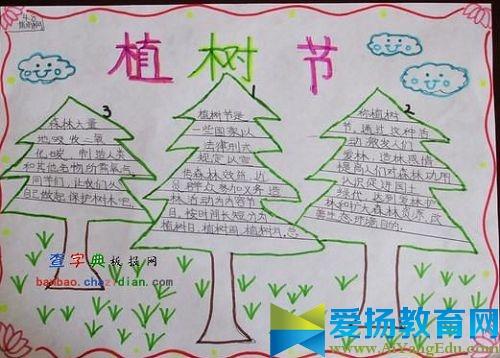 植树节
1
植树节是
一些国家以
法律形式
规定以宣
传森林效益,动
员群众参加义务造
林活动为内容节
日,按时间长短分为
植树日,植树周,植树月,总
2
称植树
节,通过这种活
动,激发人们
爱林,造林感情
提高人们对森林功用
认识促进国土
绿化,达到爱林护
林和扩大森林资源、改
善生态环境目的。
3
森林大量
地吸收二氧
化碳,制造人类
和其他生物所需氧气
同学们,让我们从
自己做起,保护树木吧
查字典板报网
banbao.chazidian.com
爱扬教育网